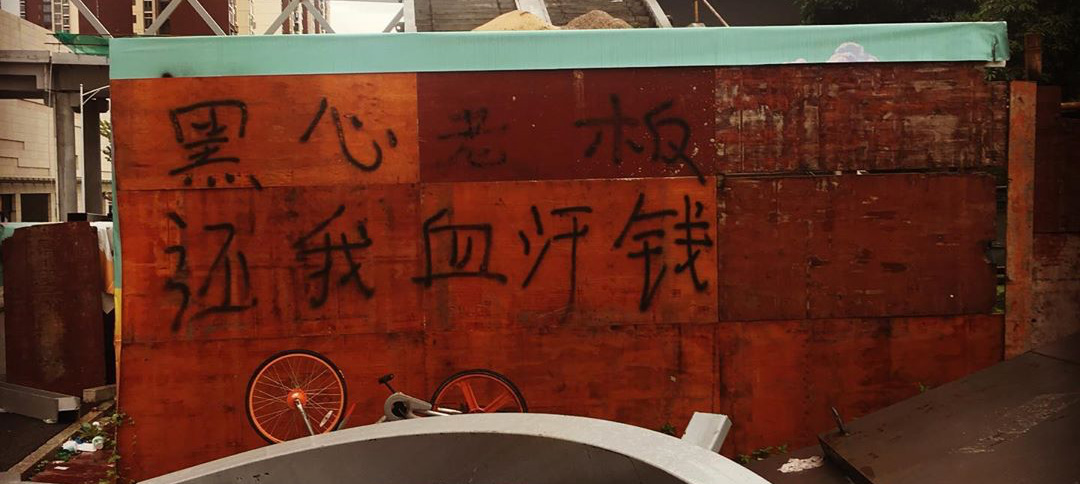 黑心老板
还我血汗钱